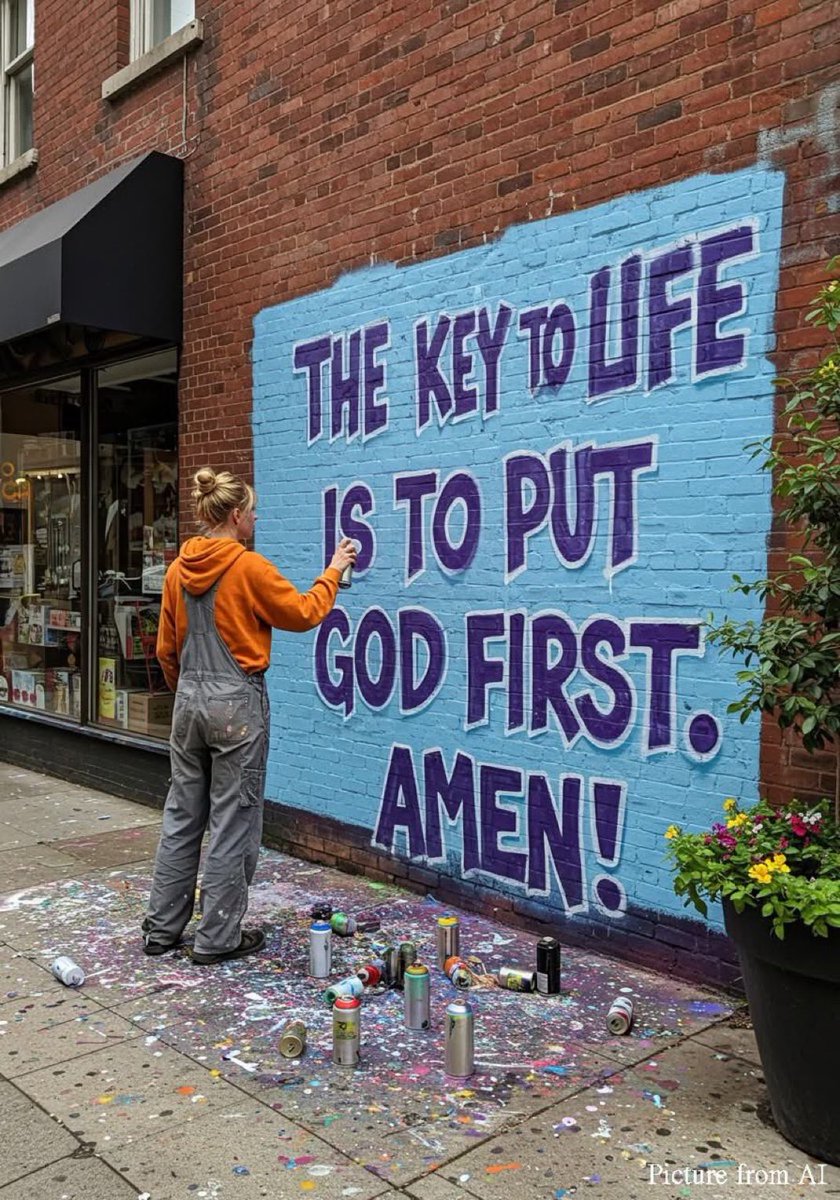 THE KEY TO LIFE
IS TO PUT
GOD FIRST.
AMEN!
Picture from AI